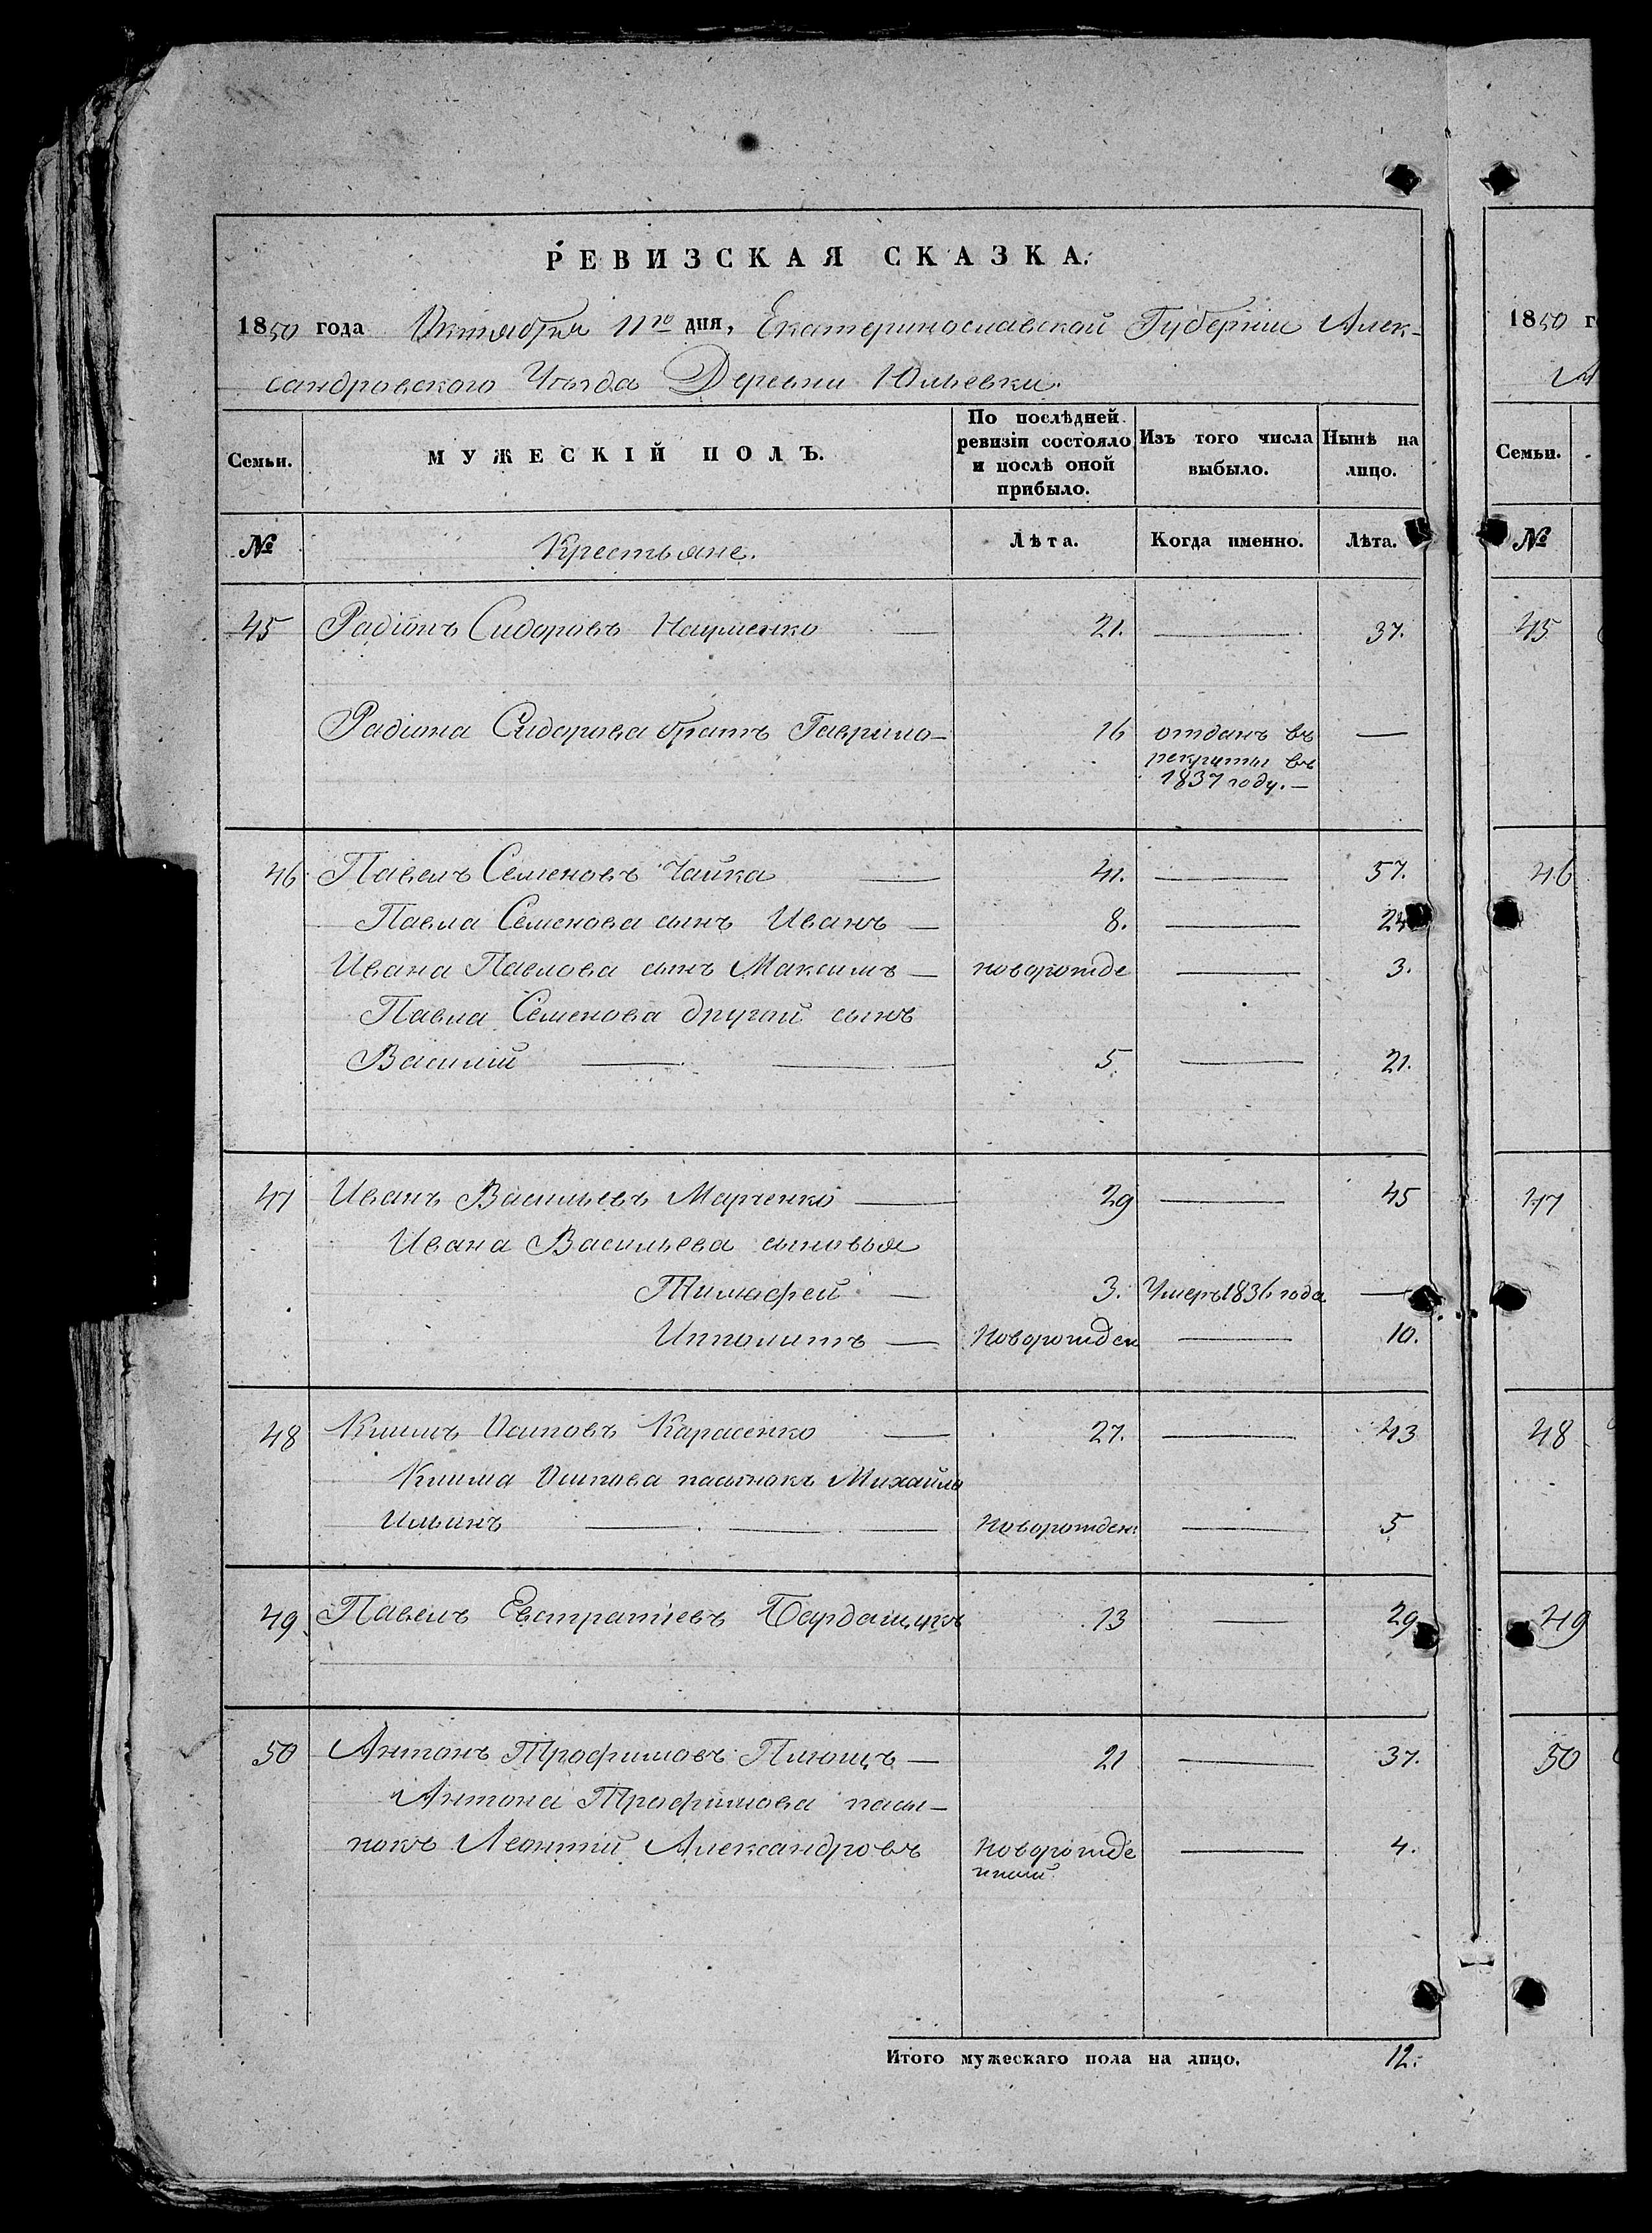 РЕВИЗСКАЯ СКАЗКА.
1850 года Октября 11го дня, Екатеринославской Губернии Алек-
сандровского Уезда Деревни Юльевки.
Семьи. МУЖЕСКІЙ ПОЛЪ. По послѣдней ревизіи состояло и послѣ оной прибыло. Изъ того числа выбыло. Нынѣ на лицо.
№ Крестьяне. Лѣта. Когда именно. Лѣта.
45 Радіонъ Сидоровъ Науменко — 21. — 37.
Радіона Сидорова братъ Гаврило — 16 отданъ въ —
рекруты въ
1837 году. —
46 Павелъ Семеновъ Чайка — 41. — 57.
Павла Семенова сынъ Иванъ — 8. — 24
Ивана Павлова сынъ Максимъ — новорожде — 3.
Павла Семенова другой сынъ
Василий — — 5. — 21.
47 Иванъ Васильевъ Марченко — 29 — 45
Ивана Васильева сыновья
Тимофей — 3. Умеръ 1836 года —
Ипполитъ — Новорожден — 10.
48 Климъ Осиповъ Карасенко — 27. — 43
Клима Осипова пасынокъ Михайло
Ильинъ — — — Новорожден: — 5
49 Павелъ Евстратіевъ 13 — 29
50 Антонъ Трофимовъ Плющъ — 21 — 37.
Антона Трофимова пасы-
нокъ Леонтий Александровъ Новорожде — 4.
нный
Итого мужескаго пола на лицо. 12.
1850 г
А
Семьи.
№
45
46
47
48
49
50